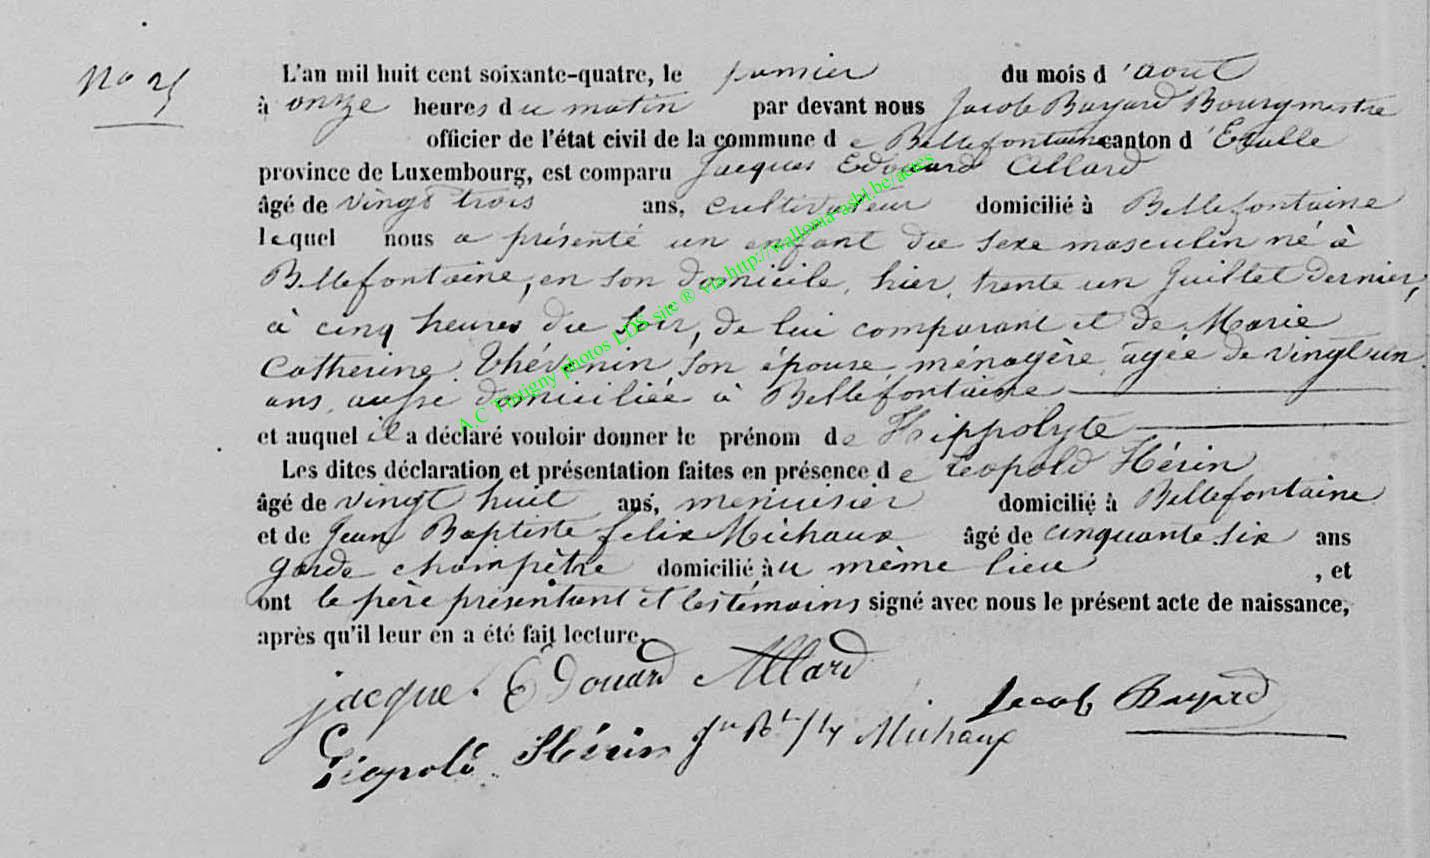 No 25
L'an mil huit cent soixante-quatre, le premier du mois d'août
à onze heures du matin par devant nous Jacob Bayard Bourgmestre
officier de l'état civil de la commune de Bellefontaine canton d'Etalle
province de Luxembourg, est comparu Jacques Edouard Allard
âgé de vingt trois ans, cultivateur domicilié à Bellefontaine
lequel nous a présenté un enfant du sexe masculin né à
Bellefontaine, en son domicile, hier, trente un Juillet dernier,
à cinq heures du soir, de lui comparant et de Marie
Catherine Thévenin son épouse, ménagère, agée de vingt un
ans, aussi domiciliée à Bellefontaine
et auquel il a déclaré vouloir donner le prénom de Hippolyte
Les dites déclaration et présentation faites en présence de Léopold Hérin
âgé de vingt huit ans, menuisier domicilié à Bellefontaine
et de Jean Baptiste felix Michaux âgé de cinquante six ans
garde champêtre domicilié au même lieu, et
ont le père présentant et les témoins signé avec nous le présent acte de naissance,
après qu'il leur en a été fait lecture.
jacque Edouard Allard
Jacob Bayard
Léopold Hérin Jn Bte fx Michaux
A.C Tintigny photos LDS site ® via http://wallonia-asbl.be/actes